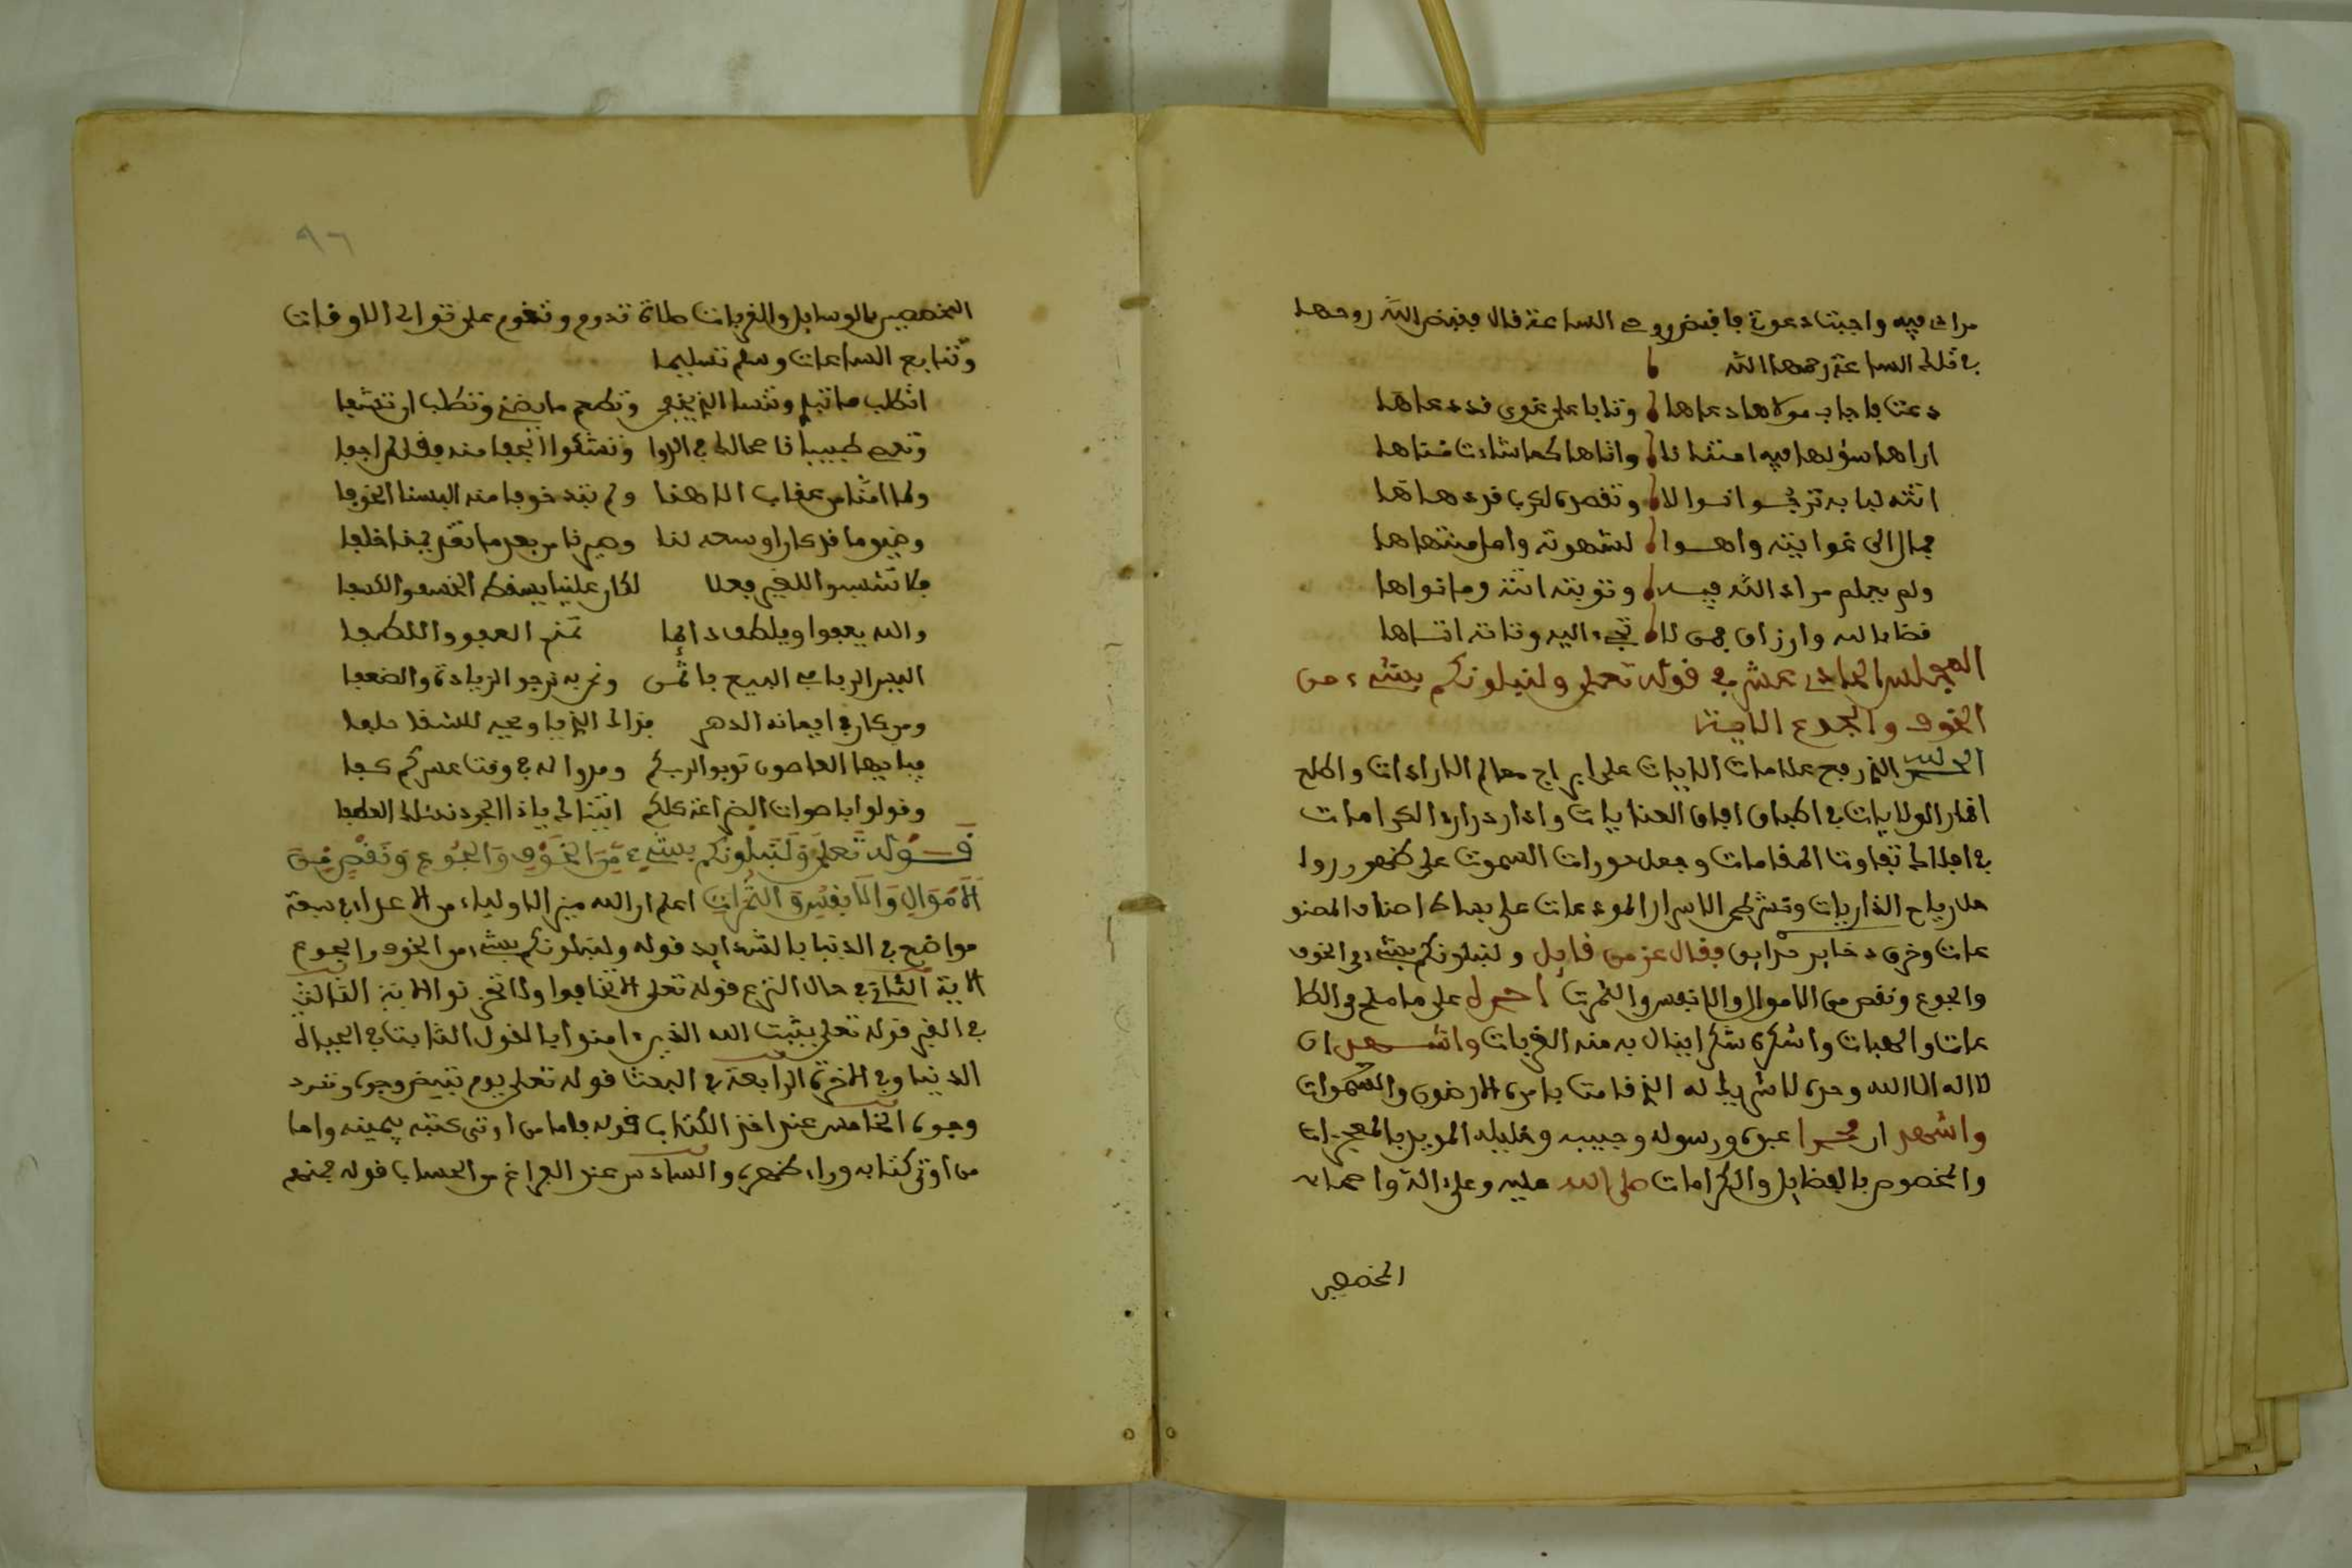 مرادي فيه واجبت دعوتي فاقبض روحي الساعة قال فقبض الله روحها
في تلك الساعة رحمها الله
دعت فاجاب مولاها دعاها وتابا على غوى قد دعاها
اراها سؤلها فيه امتنانا واتاها كما شاءت مناها
اتته لبابه ترجوا نوالا وتقصده لكرب قد دهاها
فمال الى غوايته واهوا لشهوته وامل منتهاها
ولم يعلم مراد الله فيه وتوبته اتته وما نواها
قضا الله وارزاق فمن لا تجيء اليه وتاته اتاها
المجلس الحادي عشر في قوله تعلى ولنبلونكم بشيء من
الخوف والجوع الاية
الحمد لله الذي رفع علامات الايات على ابراج معالم الارادات واطلع
اقمار الولايات في اطباق افاق العنايات وادار دراري الكرامات
في افلاك تفاوت المقامات وجعل دورات السموت على ظهور روا
حل رياح الذاريات ونشر طي الاسرار الموءعات على بساط اصناف المصنو
عات وخرق دخاير فقال عز من قايل ولنبلونكم بشيء من الخوف
والجوع ونقص من الاموال والانفس والثمرت احمده على ما ملح من الطا
عات والهبات واشكره شكرا ينال به منه القربات واشهد ان
لا اله الا الله وحده لا شريك له الذي قامت بامره الارضون والسموات
واشهد ان محمدا عبده ورسوله وحبيبه وخليله المويد بالمعجزات
والمخصوص بالفضايل والكرامات صلى الله عليه وعلى اله واصحابه
المخصصين
٩٦
المخصصين بالوسايل والقربات صلاة تدوم وتقوم على توالي الاوقات
وتتابع الساعات وسلم تسليما
اتطلب ما تبلي وتنسا الذي يخفى وتطمع ما يضني وتطلب ان تشفا
وتعصي طبيبا قاصالك في الدوا وتشكوا الجفا منه فقل لي من اجفا
ولما امنا من عقاب الاهنا ولم نبد خوفا منه البسنا الخوفا
وضيق ما قد كان اوسعه لنا وصيرنا من بعد ما نقدمنا خلفا
فلا تنسبوا للغير فعلا لكان علينا يسقط الخسف والكسفا
والله يعفوا ويلطف دائما تمنى العفو واللطفا
اليس الربا في البيع باثمن ونحن به نرجو الزيادة والضعفا
ومن كان في ايمانه الدهر فذاك الذي يا ويحه للشقا حلفا
فيا ايها العاصون توبوا لربكم ومدوا له في وقت عسركم كفا
وقولوا باصوات الضراعة كلكم اتينا لك ياذا الجود نسئلك العطفا
قوله تعلى ولنبلونكم بشيء من الخوف والجوع ونقص من
الاموال والانفس والثمرات اعلم ان الله ميز الاولياء من الاعداء في سبعة
مواضع في الدنيا بالشدايد قوله ولنبلونكم بشيء من الخوف والجوع
الاية الثاني في حال النزع قوله تعلى الا تخافوا ولا تحزنوا الاية الثالث
في القبر قوله تعلى يثبت الله الذين ءامنوا بالقول الثابت في الحياة
الدنيا وفي الاخرة الرابعة في البعث قوله تعلى يوم تبيض وجوه وتسود
وجوه الخامس عند اخذ الكتاب قوله فاما من اوتي كتبه بيمينه واما
من اوتي كتابه وراء ظهره والسادس عند الفراغ من الحساب قوله فمنهم